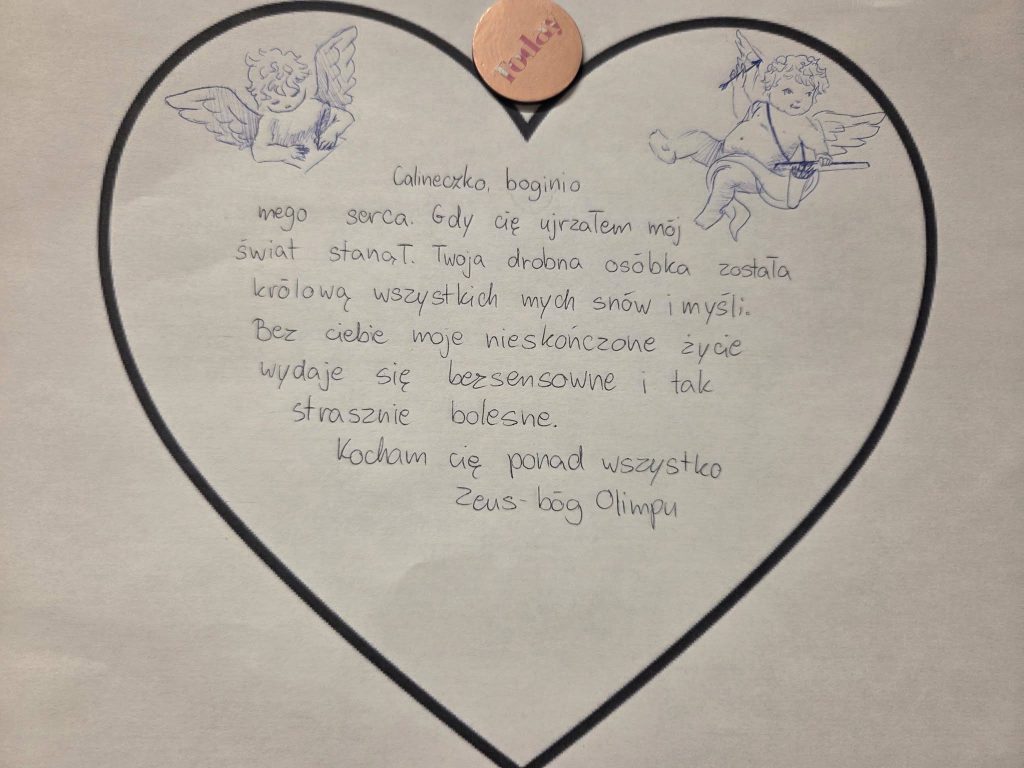 Today
Calineczko, boginio
mego serca. Gdy cię ujrzałem mój
świat stanął. Twoja drobna osóbka została
królową wszystkich mych snów i myśli.
Bez ciebie moje nieskończone życie
wydaje się bezsensowne i tak
strasznie bolesne.
Kocham cię ponad wszystko
Zeus-bóg Olimpu